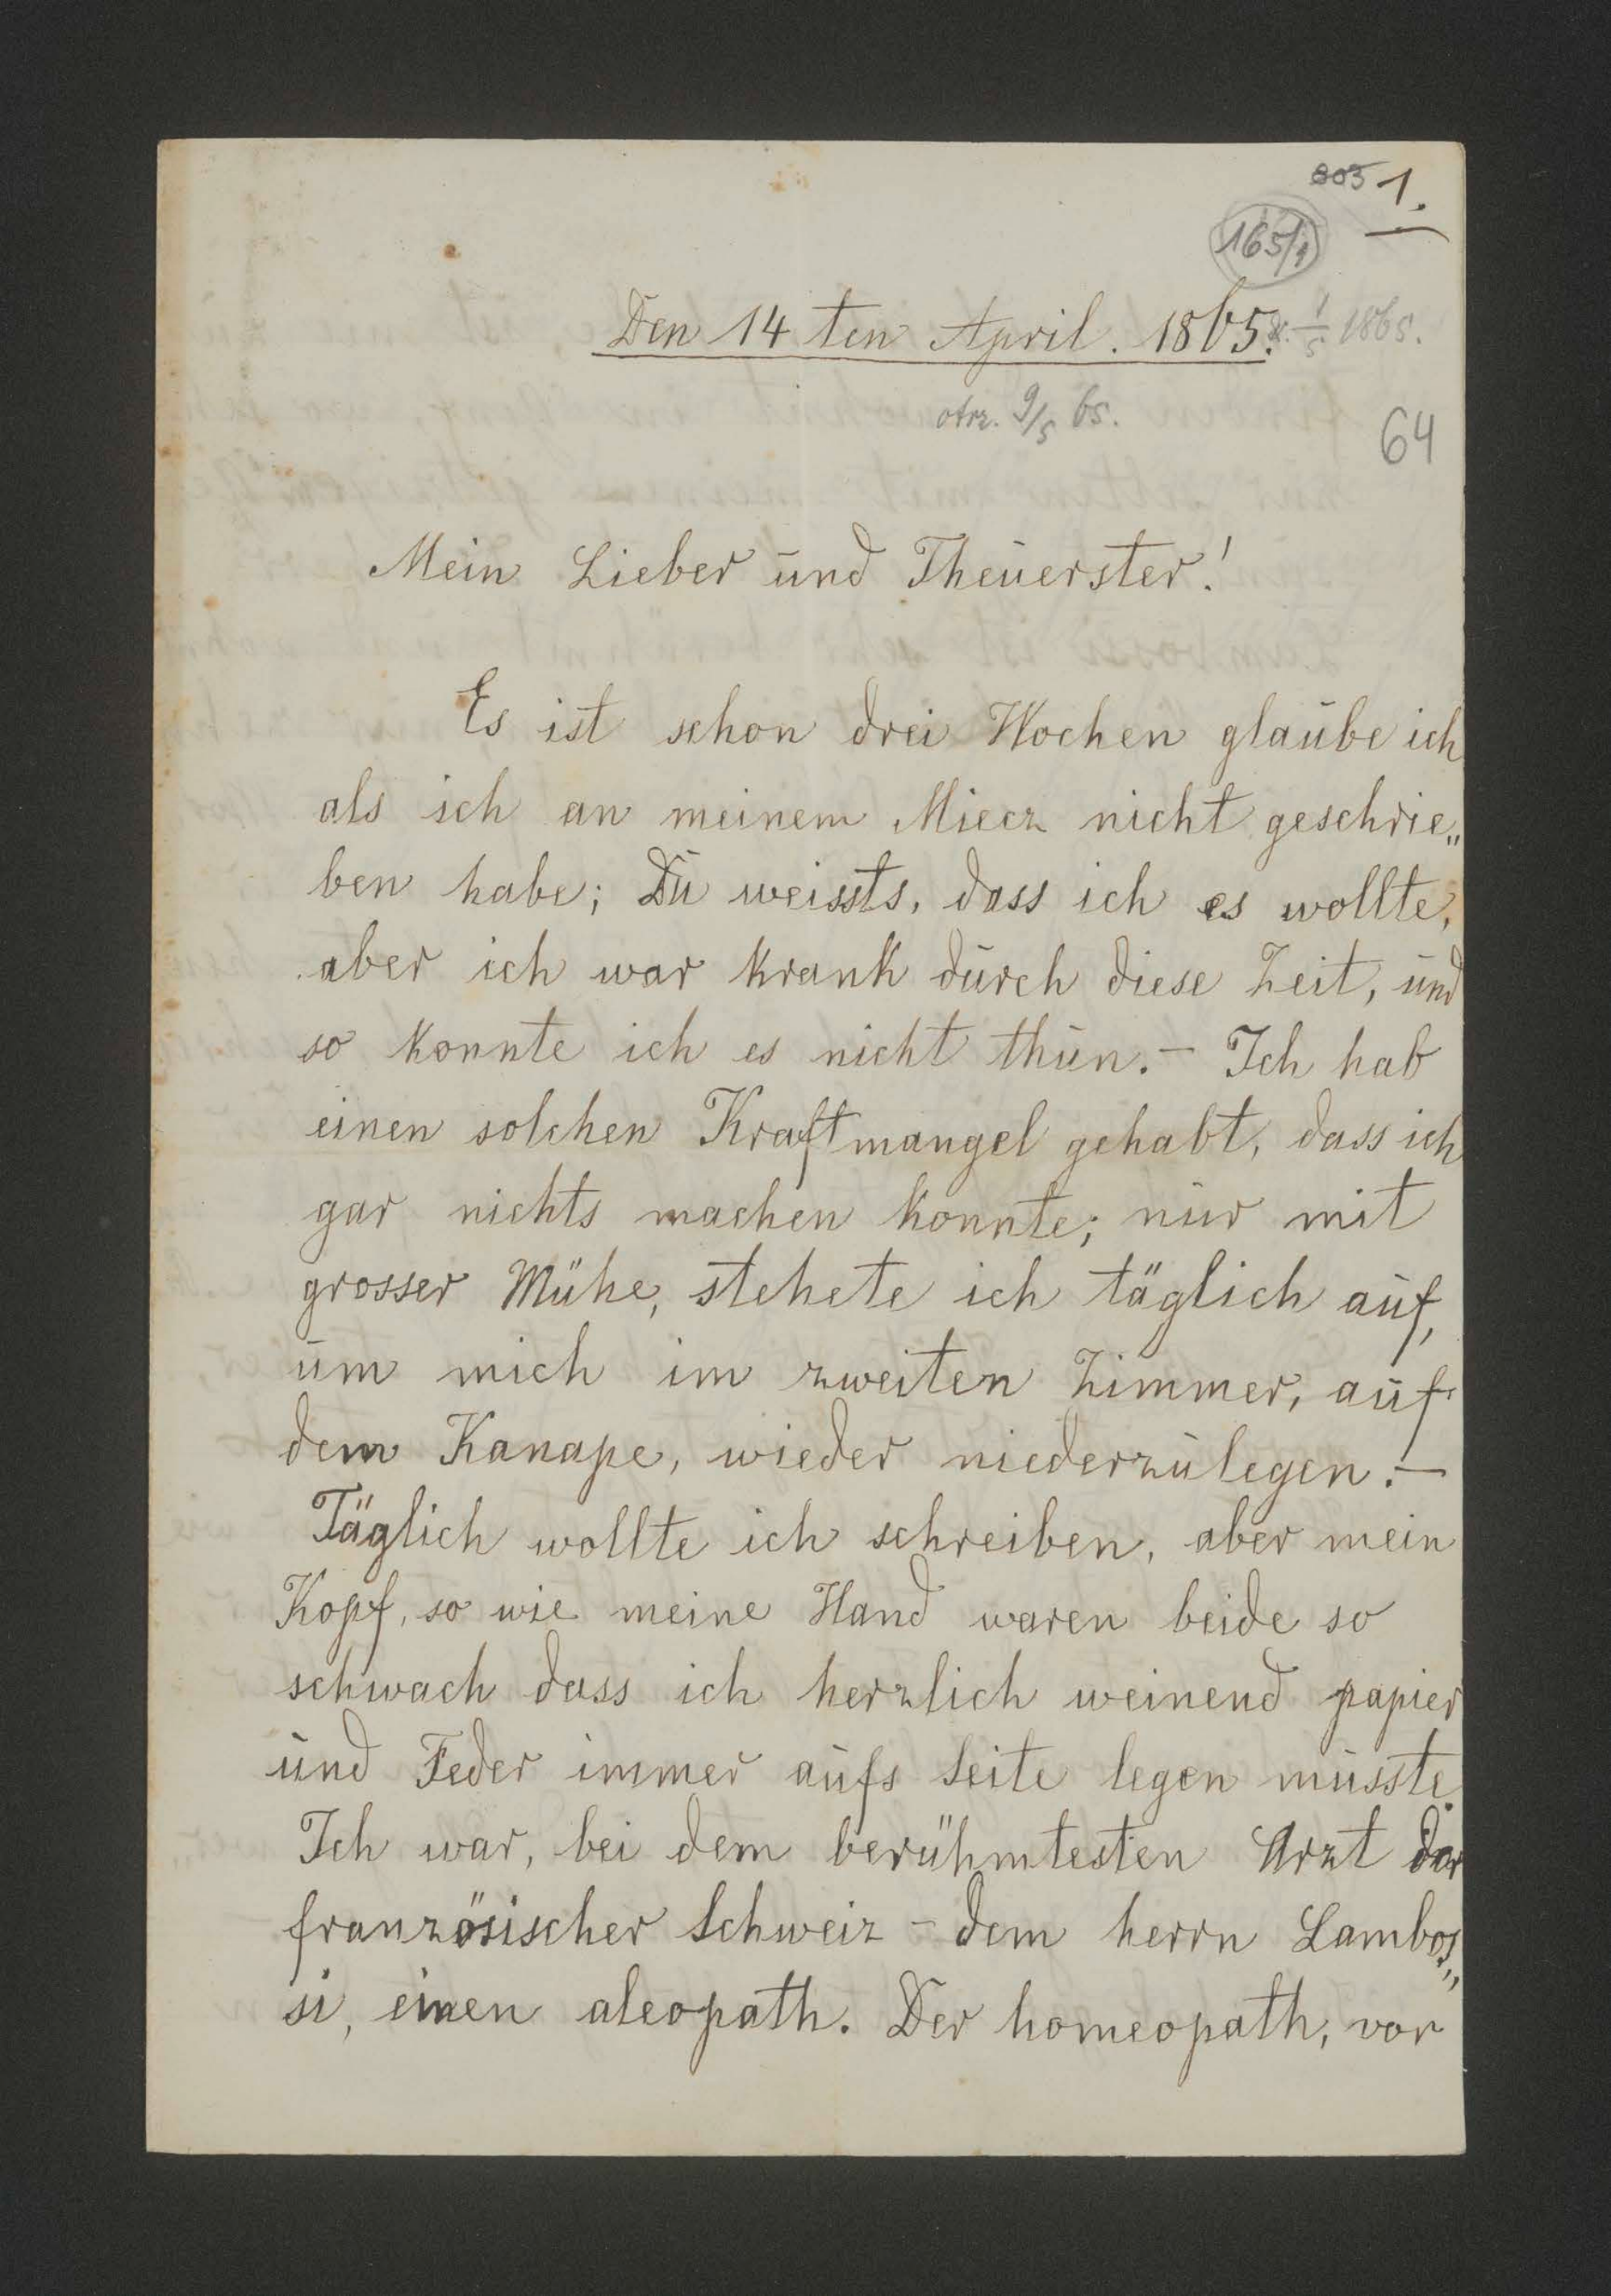 803 1.
165/1
Den 14 ten April. 1865. 1/5 1865.
otrz. 9/5 65.
64
Mein Lieber und Theuerster!
Es ist schon drei Wochen glaube ich
als ich an meinem Miecz nicht geschrie„
ben habe; Du weissts, dass ich es wollte,
aber ich war krank durch diese Zeit, und
so konnte ich es nicht thun.- Ich hab
einen solchen Kraftmangel gehabt, dass ich
gar nichts machen konnte; nur mit
grosser Mühe, stehete ich täglich auf,
um mich im zweiten Zimmer, auf
dem Kanape, wieder niederzulegen.-
Täglich wollte ich schreiben, aber mein
Kopf, so wie meine Hand waren beide so
schwach dass ich herzlich weinend papier
und Feder immer aufs Seite legen musste.
Ich war, bei dem berühmtesten Arzt der
französischer Schweiz - dem herrn Lambos„
si, einen aleopath. Der homeopath, vor